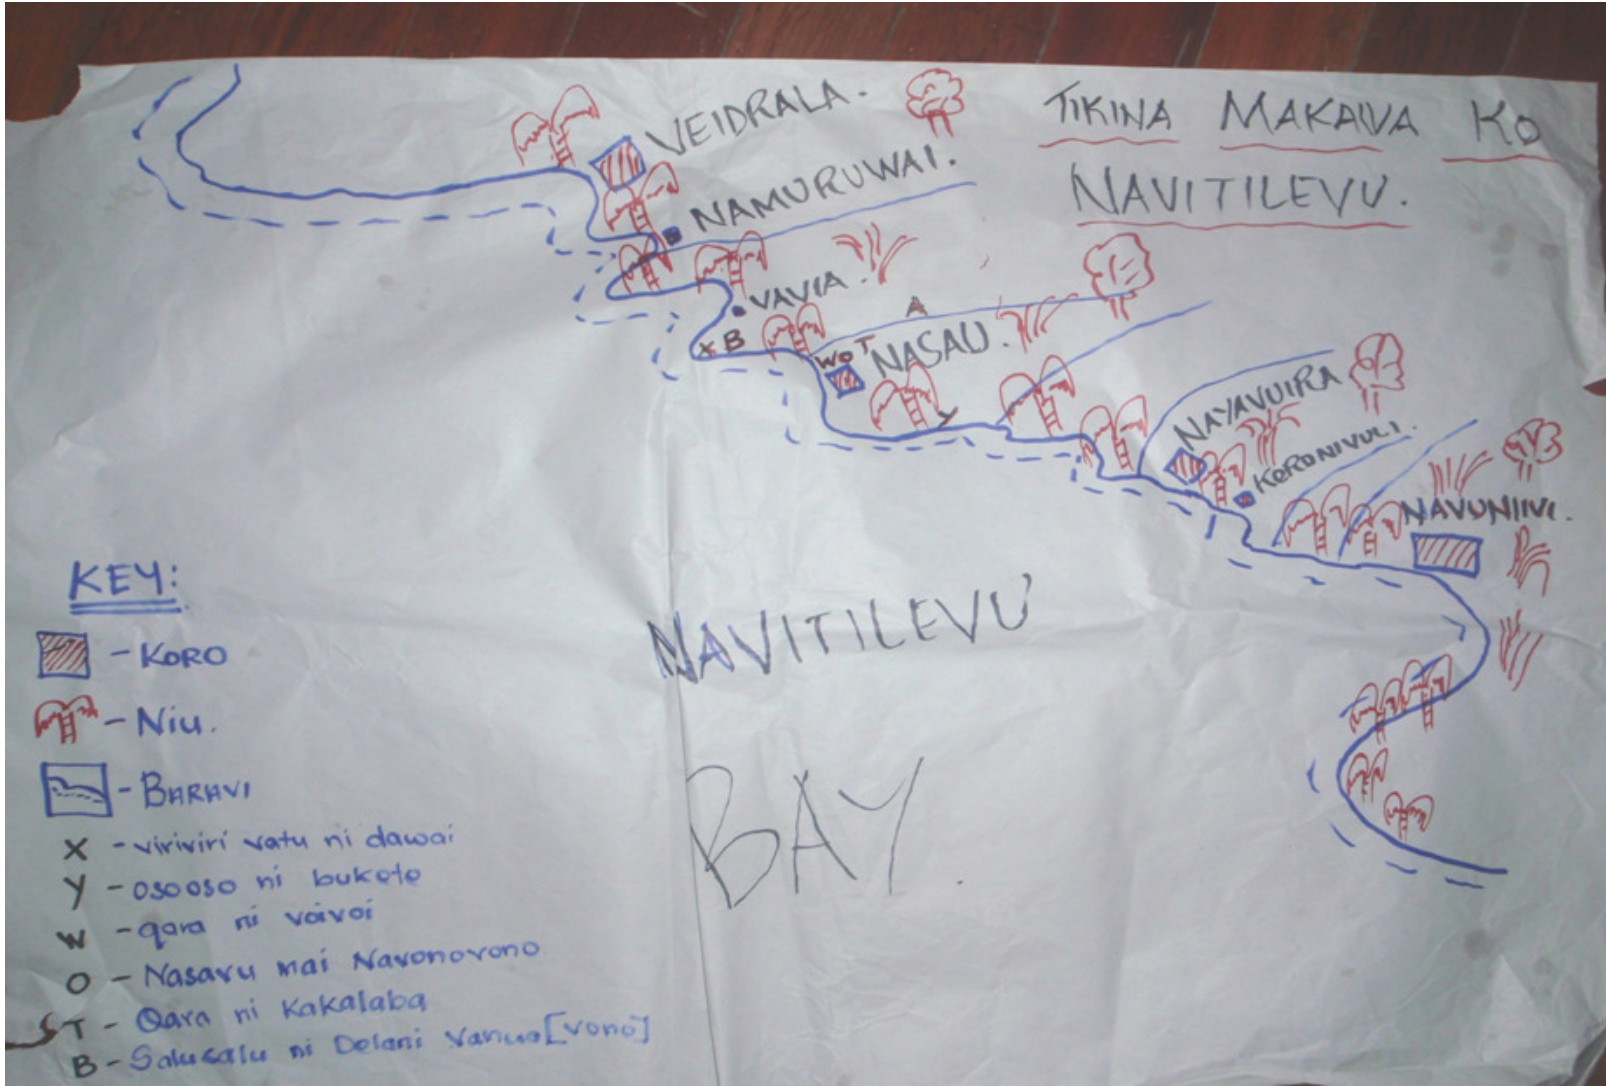 TIKINA MAKAWA KO
NAVITILEVU.
VEIDRALA.
NAMURUWAI.
VAVIA.
A
X B
W O T
NASAU.
Y
NAYAVUIRA
KORONIVULI.
NAVUNIIVI.
NAVITILEVU
BAY.
KEY:
- KORO
- Niu.
- BARAVI
X - viriviri vatu ni dawai
Y - osooso ni bukete
W - qara ni voivoi
O - Nasavu mai Navonovono
T - Qara ni Kakalaba
B - Salusalu ni Delani Vanua [vono]